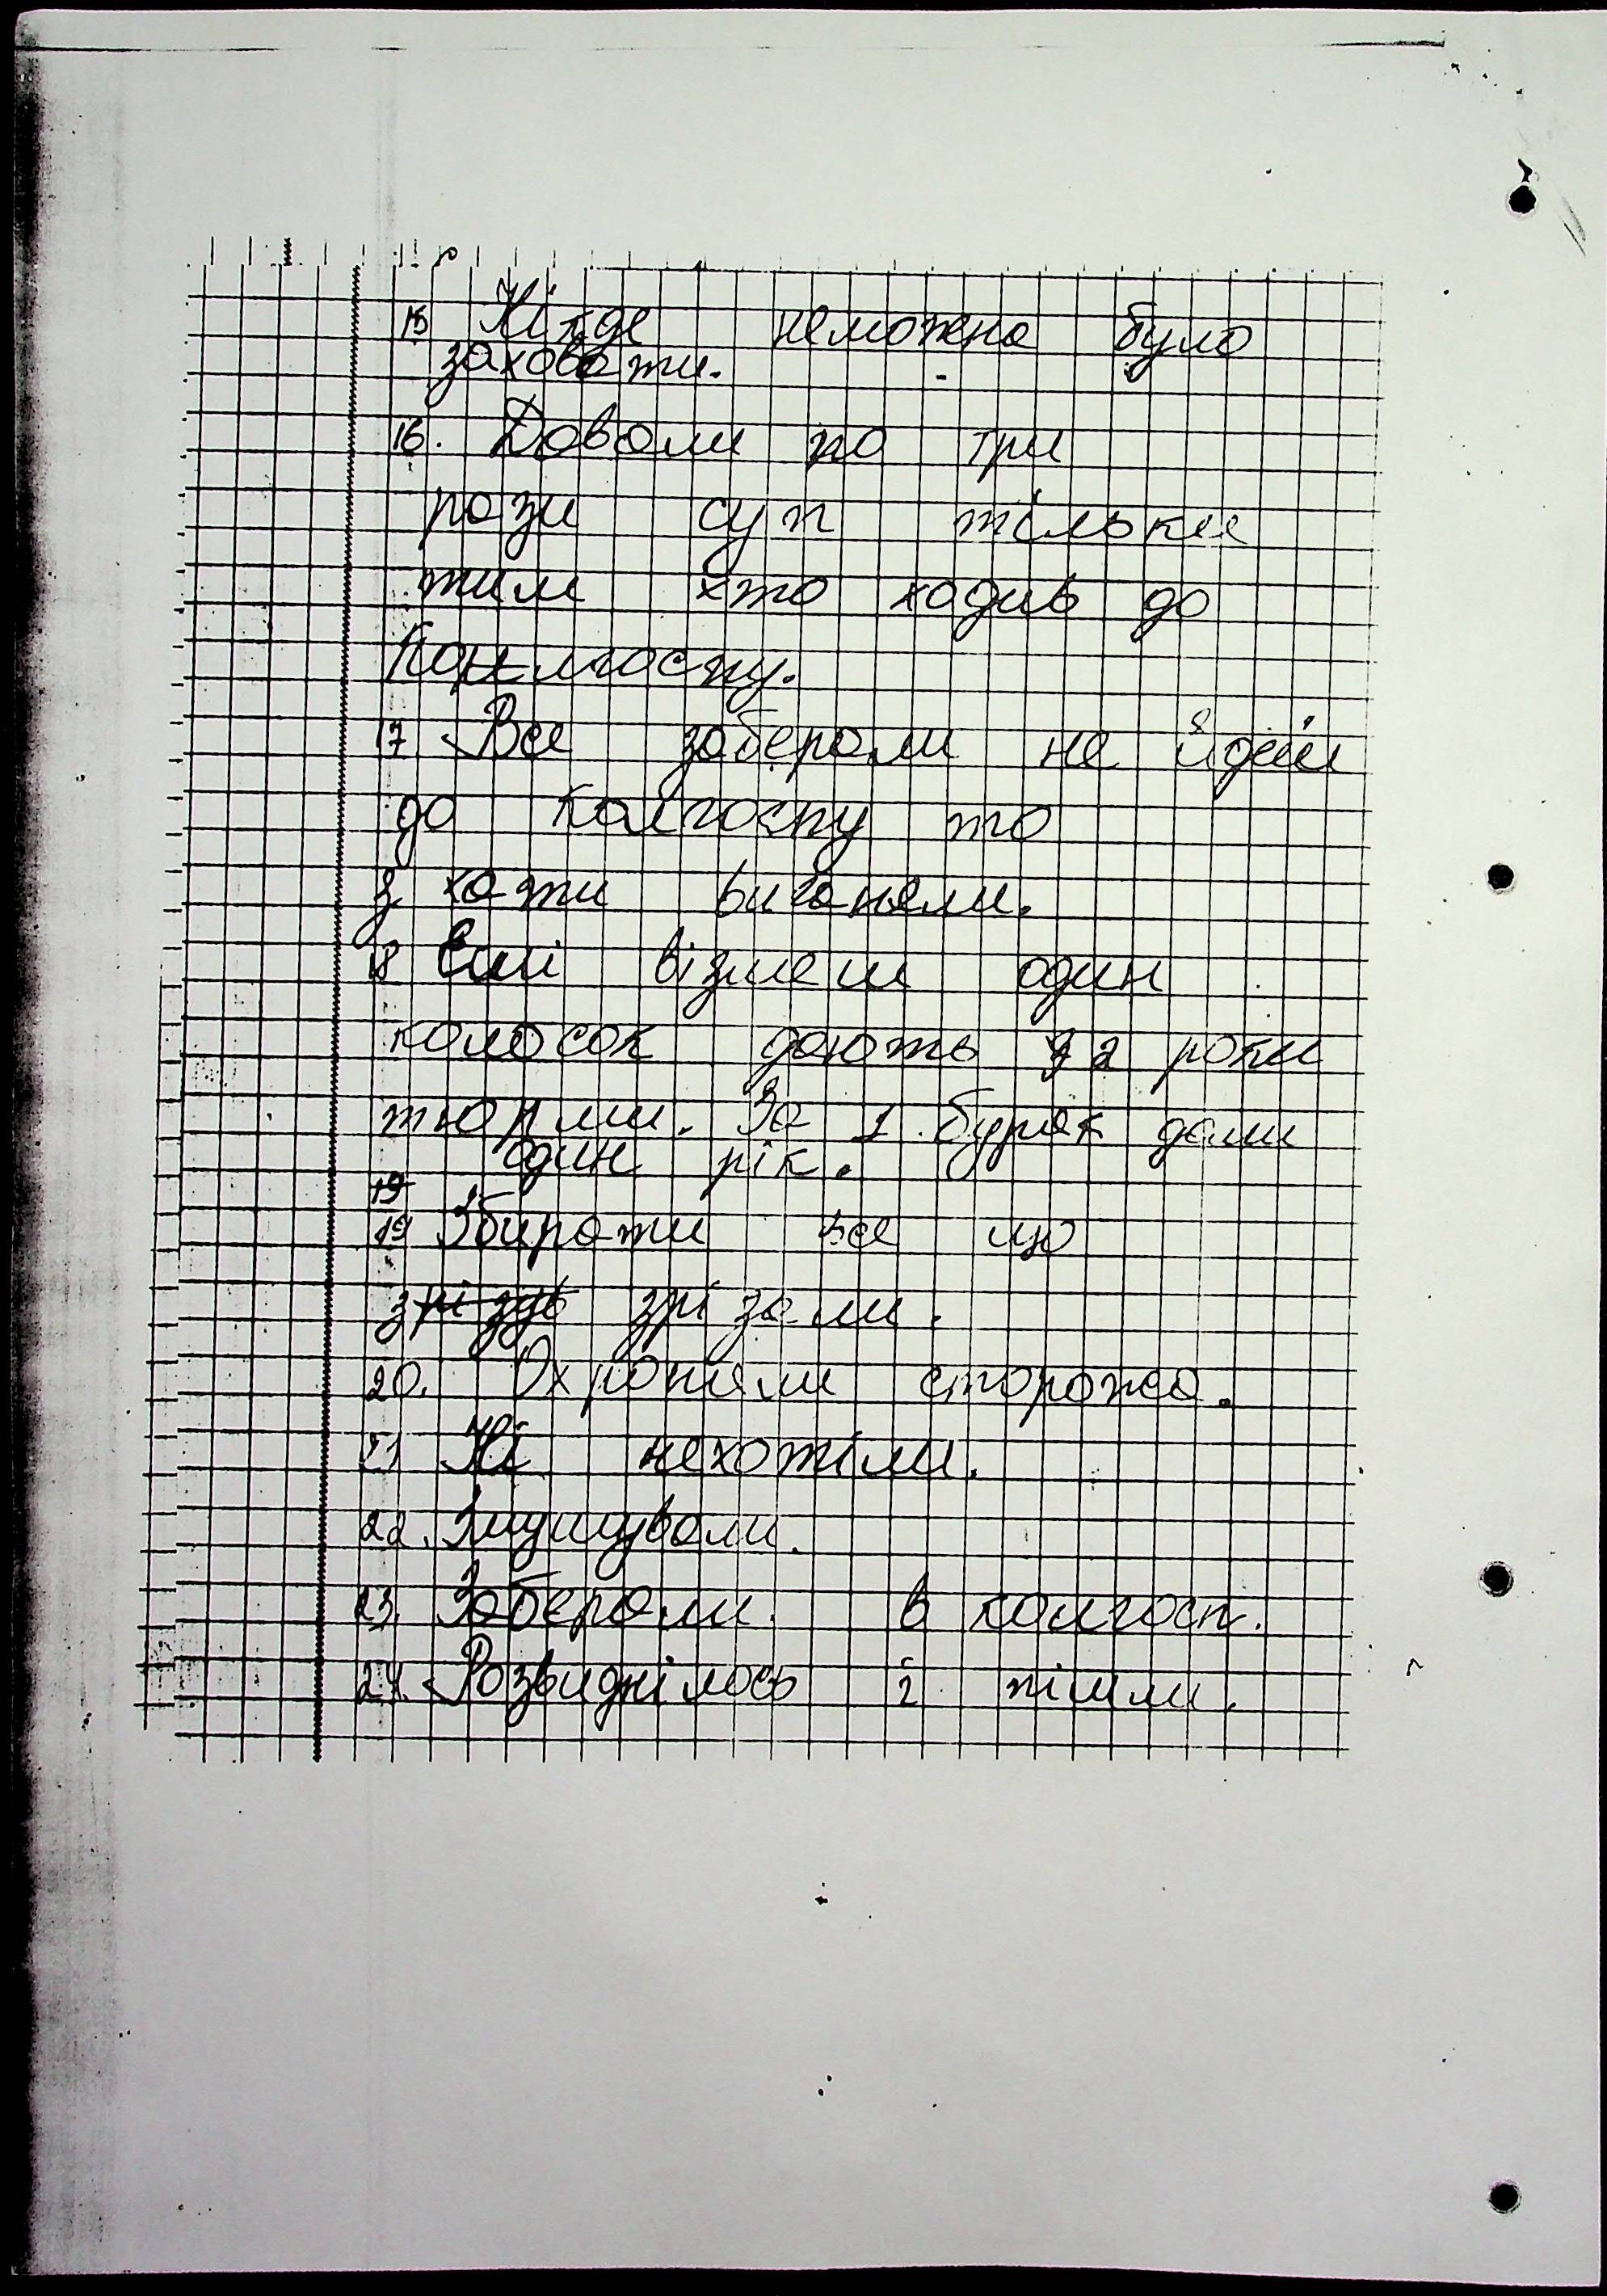 15 Нікде неможна було
заховати.
16. Давали по три
рази суп тільки
тим хто ходив до
17 Все заберали не йдеш
до колгоспу то
з хати виганяли.
18 Єслі візмеш один
колосок дають 2 роки
тюрми. За 1 буряк дали
один рік.
19
19 Збирати все що
зрізали.
20. Охраняли сторожа.
21 Ні нехотіли.
22. Знущували.
23. Заберали в колгосп.
24. Розвиднілось і пішли.